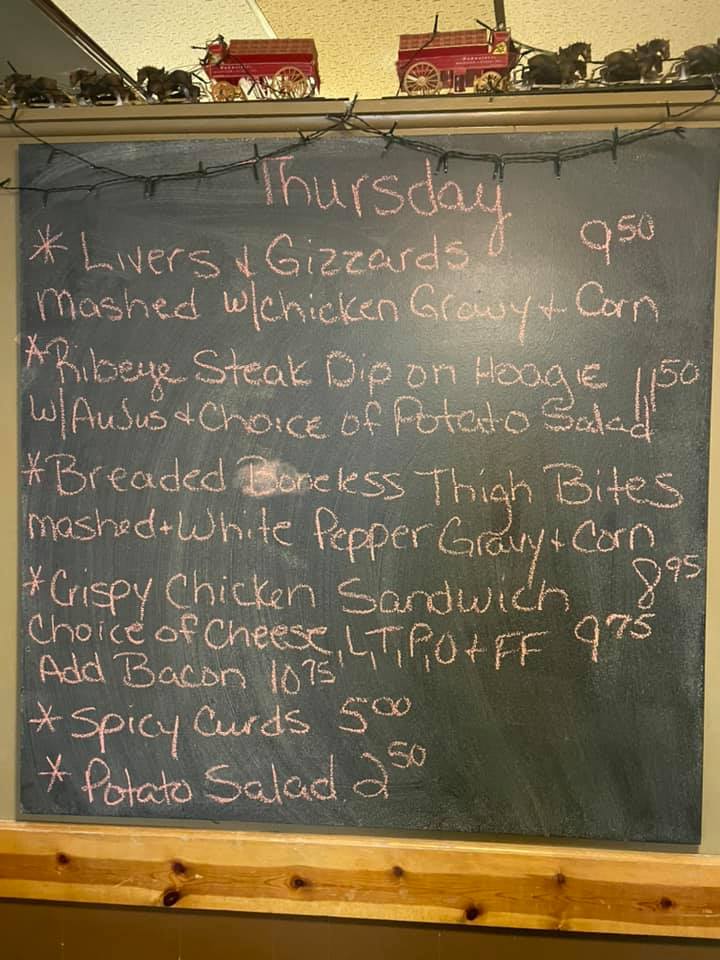 Thursday
* Livers & Gizzards 9.50
mashed w/chicken Gravy + Corn
* Ribeye Steak Dip on Hoagie 11.50
w/AuJus & Choice of Potato Salad
* Breaded Boneless Thigh Bites
mashed + White Pepper Gravy + Corn
8.95
* Crispy Chicken Sandwich
Choice of Cheese, L,T,P,O + FF 9.75
Add Bacon 10.75
* Spicy Curds 5.00
* Potato Salad 2.50